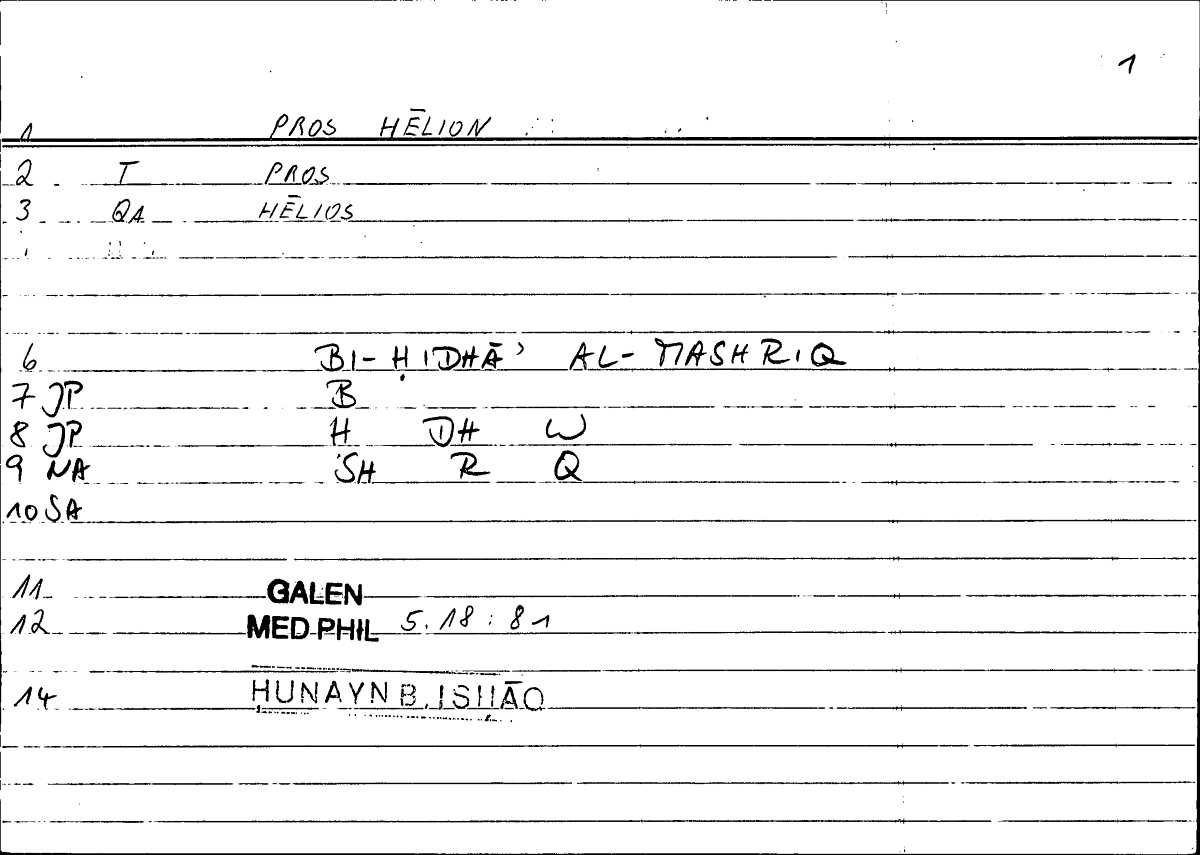 1
1 PROS HĒLION
2 T PROS
3 QA HĒLIOS
6 BI-ḤIDHĀʾ AL-MASHRIQ
7 JP B
8 JP H DH W
9 NA SH R Q
10 SA
11 GALEN
12 MED PHIL 5.18:81
14 ḤUNAYN B. ISḤĀQ